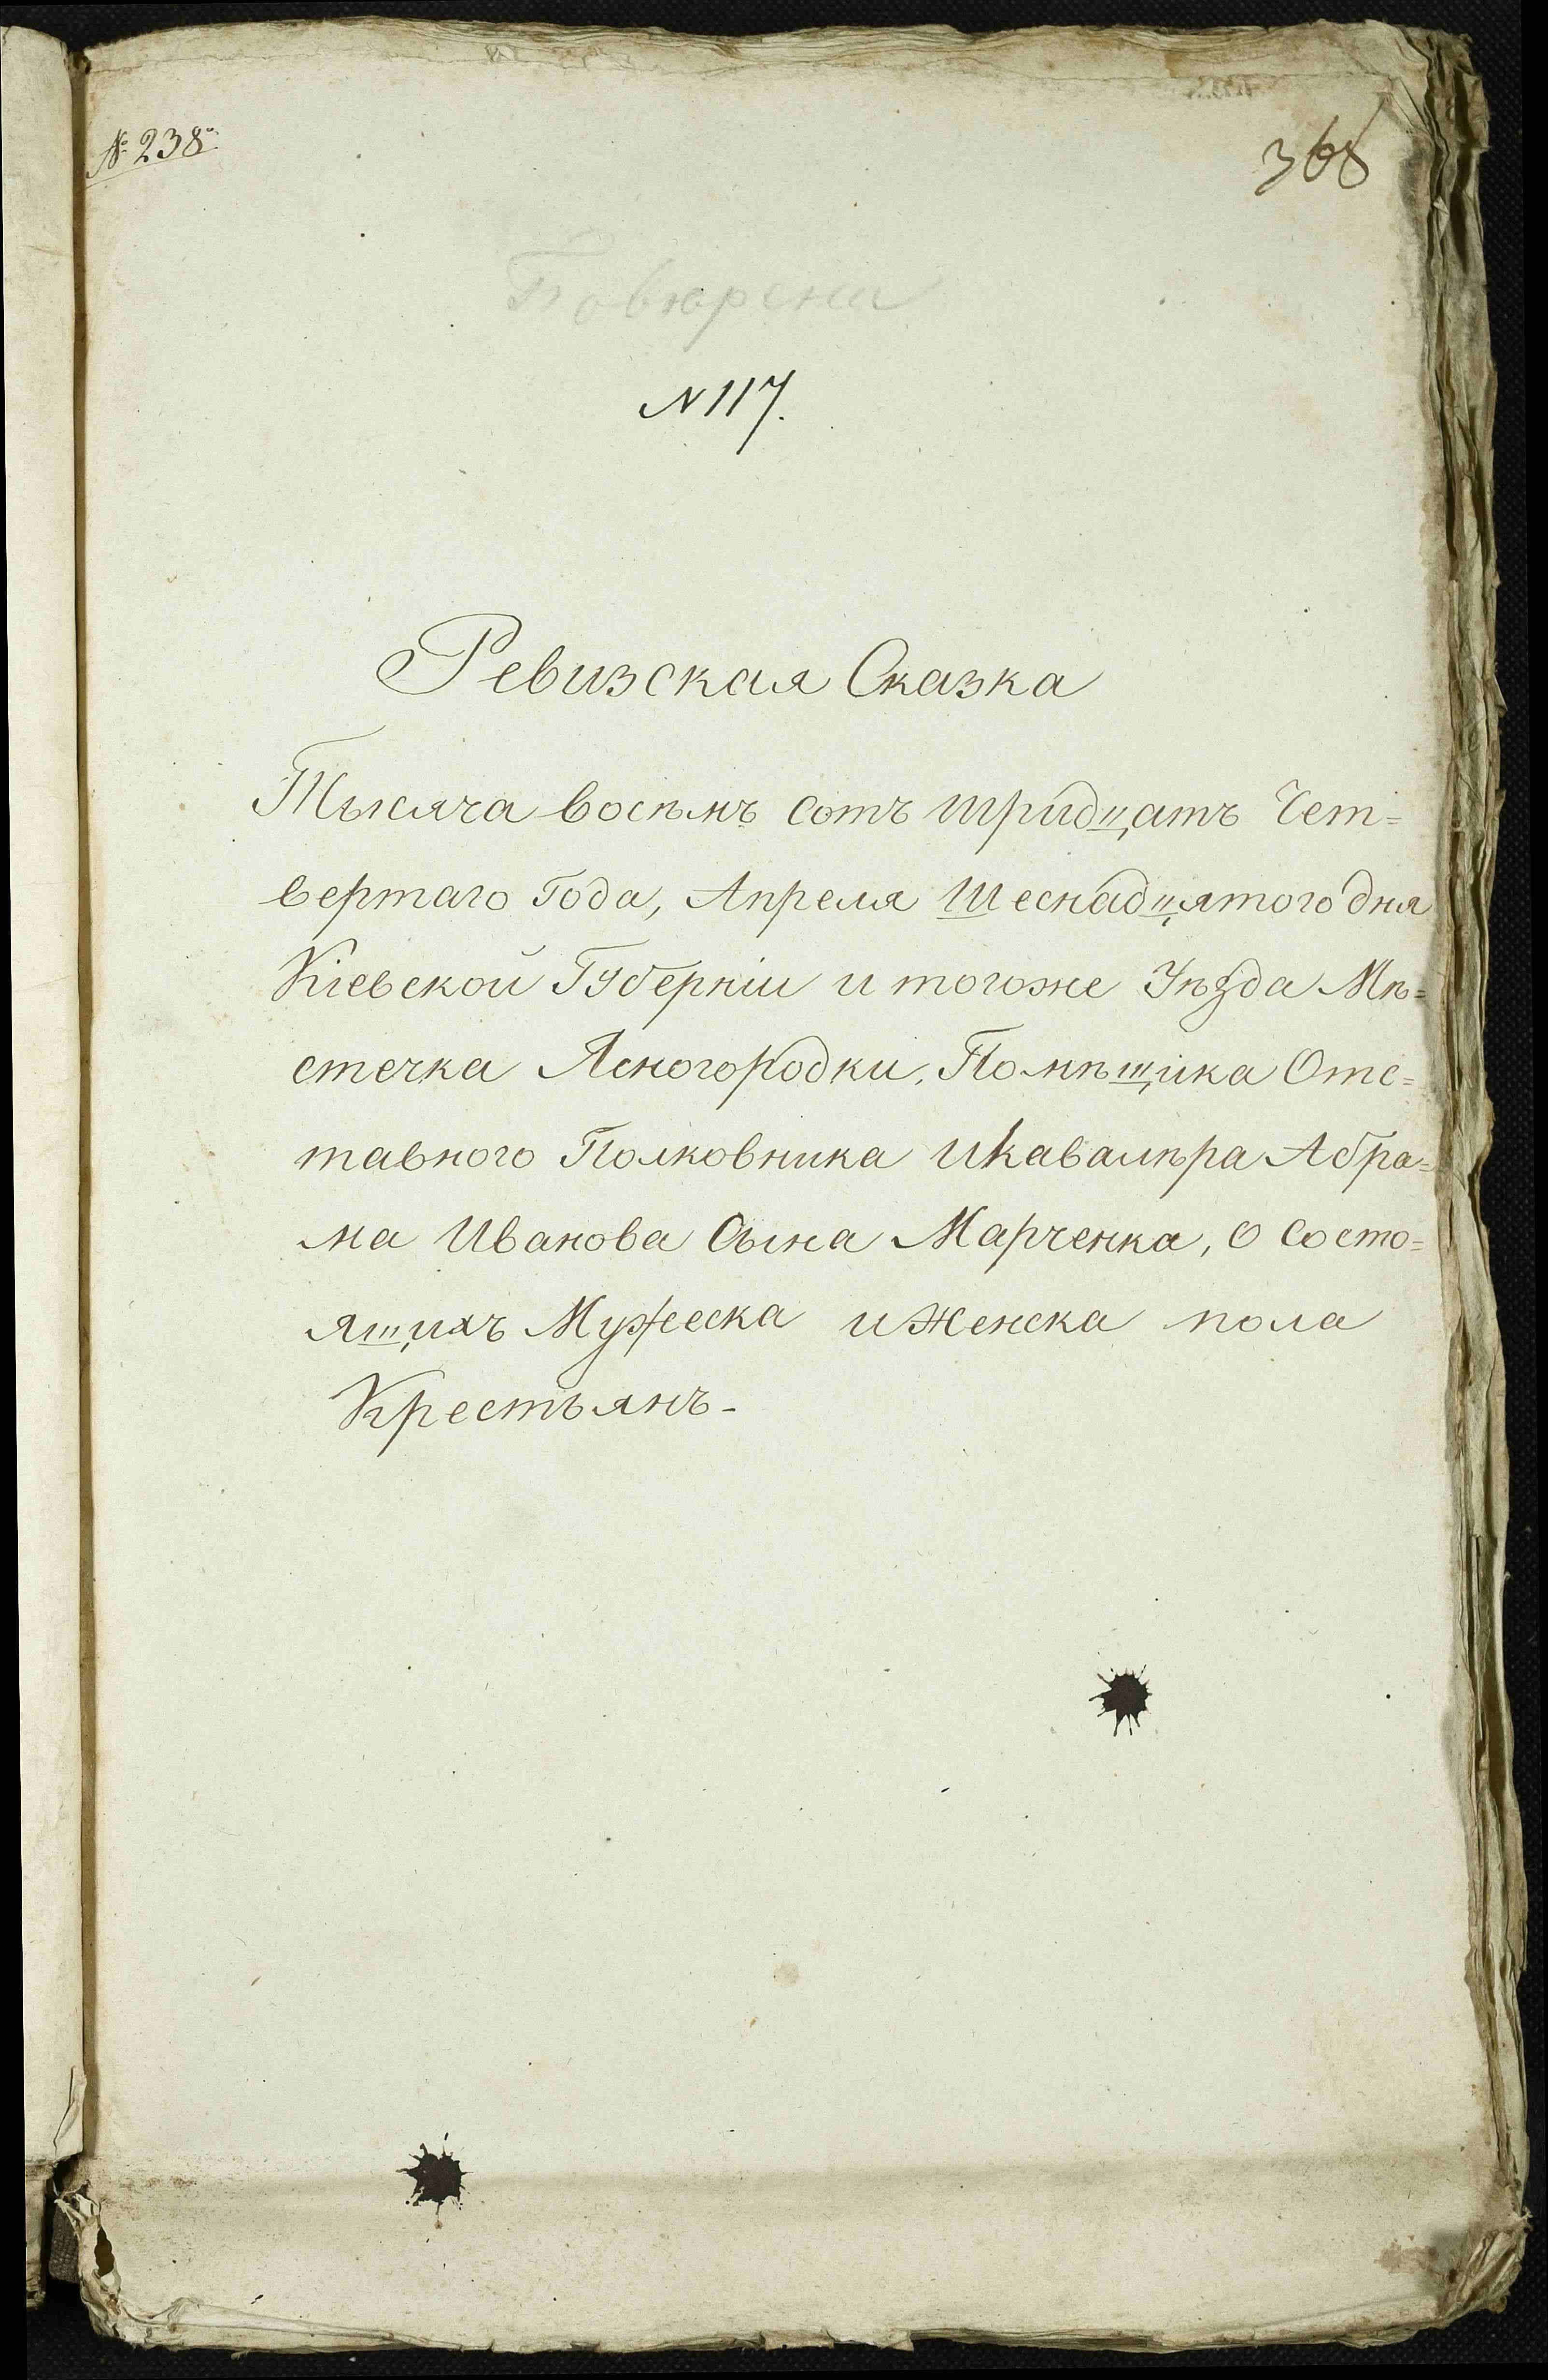 № 238.
368
Повѣрена
N 117.
Ревизская Сказка
Тысяча восѣмъ сотъ тридцатъ Чет=
вертаго Года, Апреля Шеснадцятого дня
Кіевской Губерніи и тогоже Уѣзда Мѣ=
стечка Ясногородки, Помѣщика Отс=
тавного Полковника и кавалѣра Абра=
ма Иванова Сына Марченка, о состо=
ящихъ Мужеска и Женска пола
Крестьянъ-